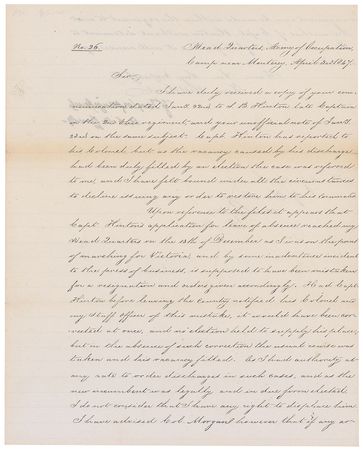 No. 36. Head Quarters, Army of Occupation,
Camp near Monterey, April 3d 1847.
Sir,
I have duly received a copy of your com-
munication dated Jan'y 22d to S. B. Hinton late Captain
in the 2d Ohio regiment, and your unofficial note of Jan'y
23d on the same subject. Capt. Hinton has reported to
his Colonel, but as the vacancy caused by his discharge
had been duly filled by an election the case was referred
to me, and I have felt bound under all the circumstances
to decline issuing any order to restore him to his command.
Upon reference to the files it appears that
Capt. Hinton's application for leave of absence reached my
Head Quarters on the 13th of December as I was on the point
of marching for Victoria, and by some inadvertence incident
to the press of business, is supposed to have been mistaken
for a resignation and orders given accordingly. Had Capt.
Hinton before leaving the country notified his Colonel or
my Staff officer of this mistake, it would have been cor-
rected at once, and no election held to supply his place,
but in the absence of such correction the usual course was
taken and his vacancy filled. As I had authority at
any rate to order discharges in such cases, and as the
new incumbent was legally and in due form elected,
I do not consider that I have any right to displace him.
I have advised Col. Morgan however that if any va-